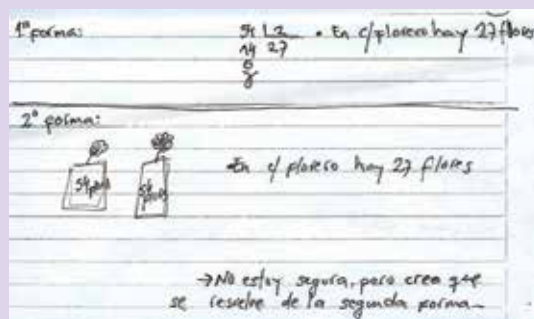 1ª forma: 54 L2 • En c/florero hay 27 flores
14 27
0
2ª forma:
• En c/ florero hay 27 flores
→ No estoy segura, pero creo que
se resuelve de la segunda forma